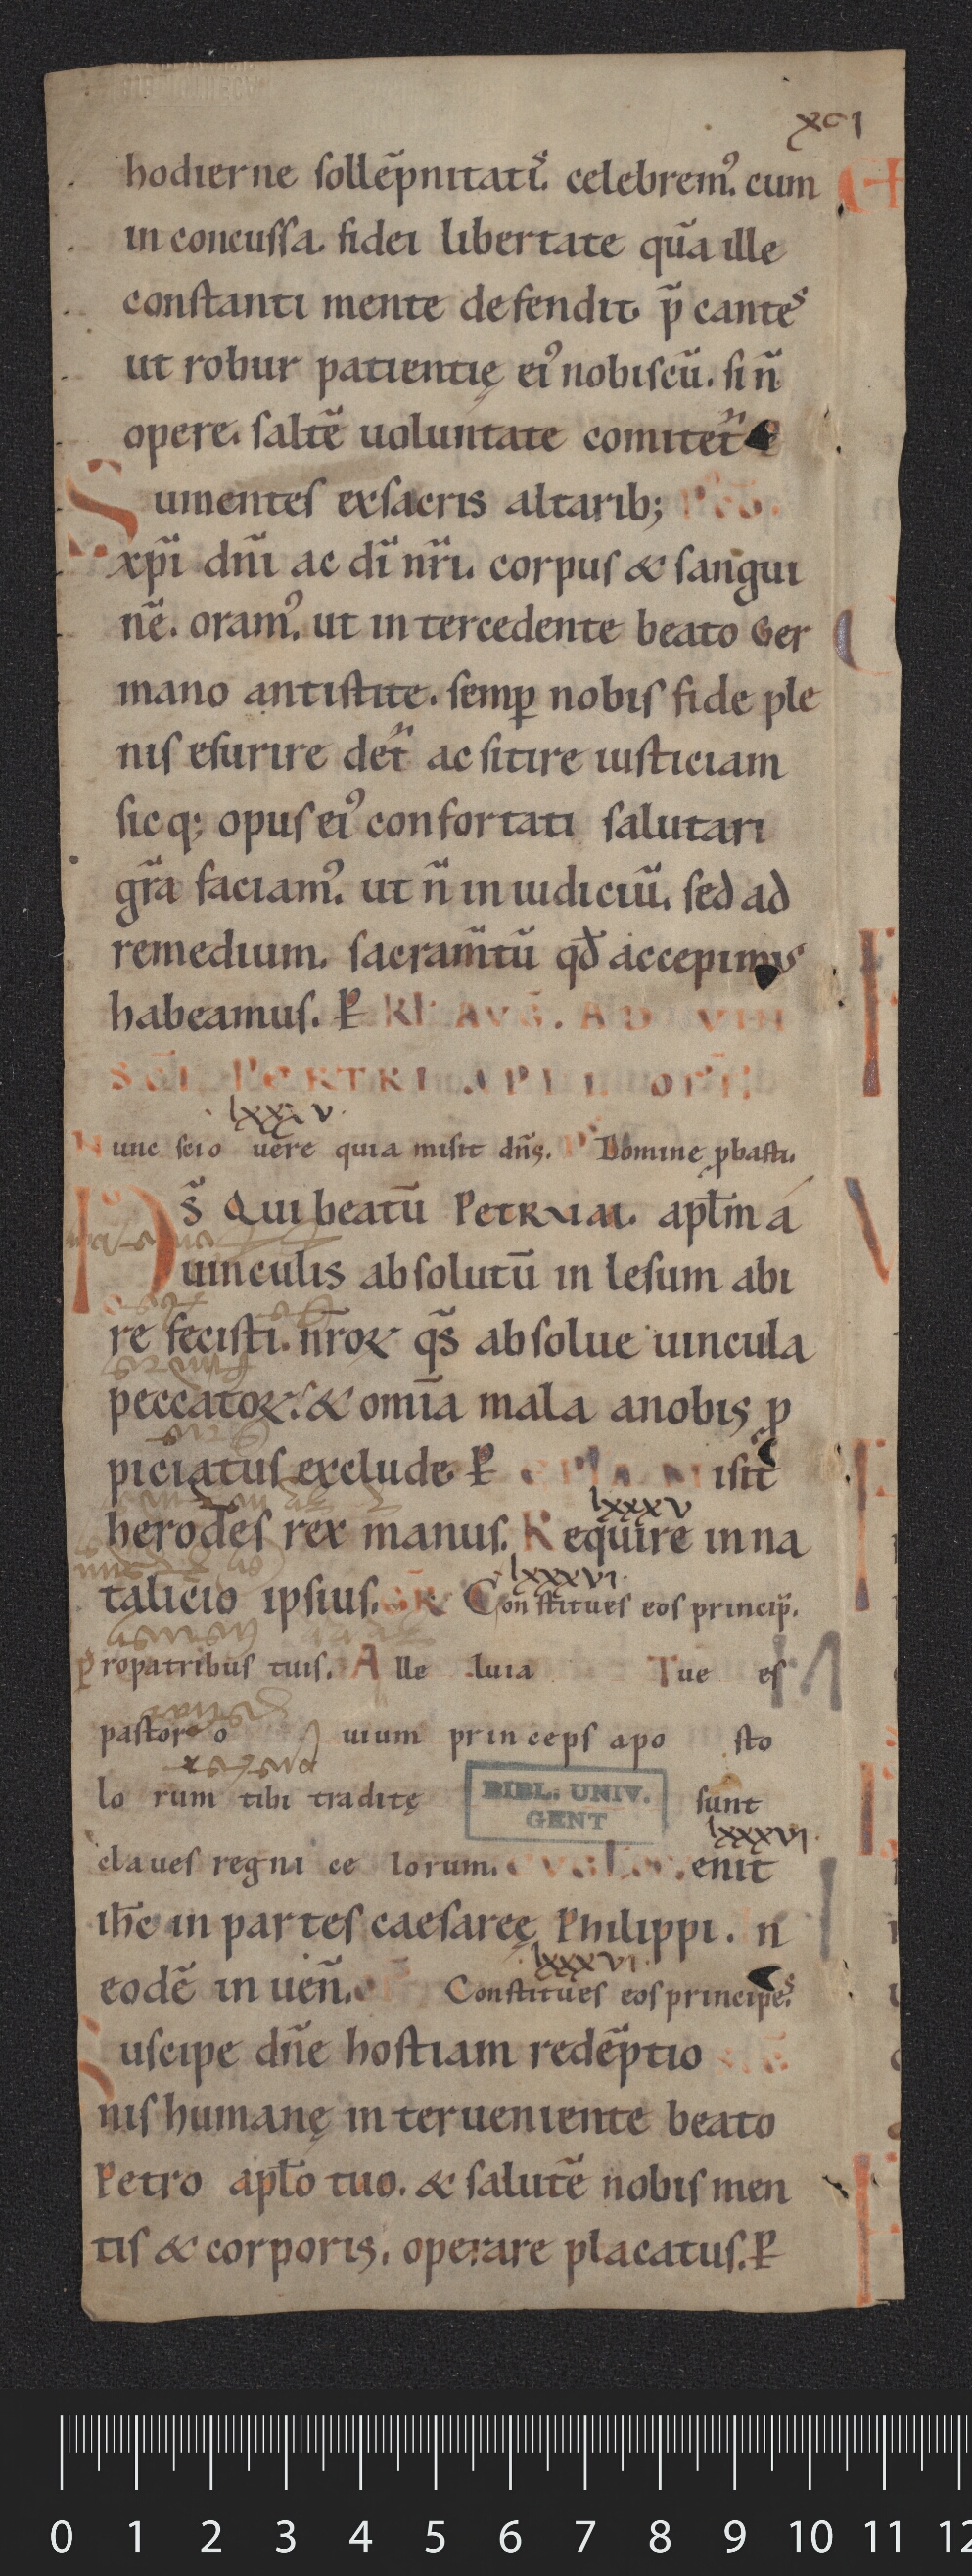 xci
hodierne sollēpnitatiˢ. celebremꝰ. cum
in concussa. fidei libertate quā ille
constanti mente defendit. p̄canteˢ
ut robur patientię eiꝰ nobiscū. si n̄
opere. saltē uoluntate comitet̄
Sumentes exsacris altarib;
xp̄i dn̄i ac dī nr̄i. corpus & sangui
nē. oramꝰ. ut intercedente beato Ger
mano antistite. semꝑ nobis fide ple
nis esurire det̄ ac sitire iusticiam
sicq; opus eiꝰ confortati salutari
gr̄a faciamꝰ. ut n̄ in iudiciū. sed ad
remedium. sacram̄tū qđ accepimus
habeamus. P KL AVḠ. AD VIN
SC̄I PETRI APLI
lxxxv
Nunc scio uere quia misit dn̄s. Domine ꝓbasti.
DS̄ Qui beatū PETRUM. apl̄m á
uinculis absolutū inlesum abi
re fecisti. nr̄oꝝ qs̄ absolue uincula
peccatoꝝ. & om̄ia mala anobis ꝓ
piciatus exclude. P isit
lxxxv
herodes rex manus. Require inna
lxxxvi.
talicio ipsius. GR Constitues eos princip̄.
Propatribus tuis. Alle luia Tu es
pastor o uium princeps apo sto
lo rum tibi traditę sunt
BIBL. UNIV.
GENT
lxxxvi.
claues regni ce lorum. enit
ih̄c in partes caesaręę Philippi. n
lxxxvi.
eodē in uen̄. Constitues eos principeˢ.
Suscipe dn̄e hostiam redēptio
nis humanę interueniente beato
Petro apl̄o tuo. & salutē nobis men
tis & corporis. operare placatus. P
0 1 2 3 4 5 6 7 8 9 10 11 12